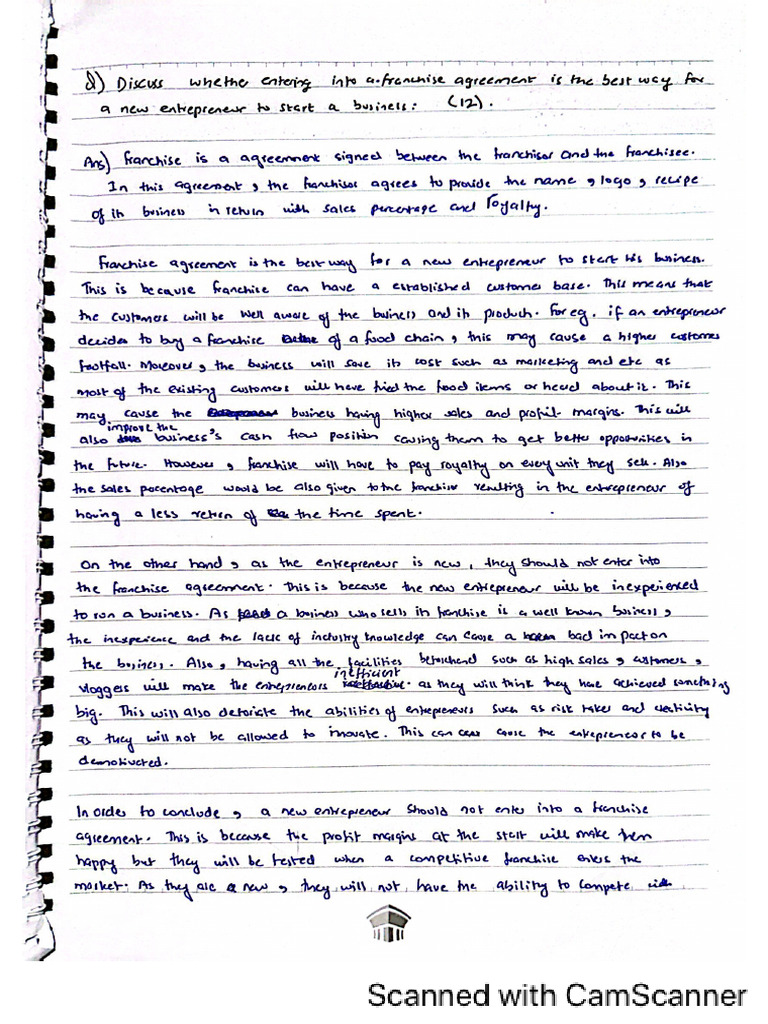 d) Discuss whether entering into a franchise agreement is the best way for
a new entrepreneur to start a business: (12).
Ans) Franchise is a agreemnt signed between the franchisor and the franchisee.
In this agreement, the franchisor agrees to provide the name, logo, recipe
of its business in return with sales percentage and royalty.
Franchise agreement is the best way for a new entrepreneur to start his business.
This is because franchise can have a established customer base. This means that
the customers will be well aware of the business and its product. For eg. if an entrepreneur
decides to buy a franchise of a food chain, this may cause a higher customer
footfall. Moreover, the business will save its cost such as marketing and etc as
most of the existing customers will have tried the food items or heard about it. This
may cause the business having higher sales and profit margins. This will
also improve the business's cash flow position causing them to get better opportunities in
the future. However, franchise will have to pay royalty on every unit they sell. Also
the sales pecentage would be also given to the franchisor resulting in the entrepreneur of
having a less return of the time spent.
On the other hand, as the entrepreneur is new, they should not enter into
the franchise agreement. This is because the new entrepreneur will be inexperienced
to run a business. As a business who sells its franchise is a well known business,
the inexperience and the lack of industry knowledge can cause a bad impact on
the business. Also, having all the facilities such as high sales, customers,
vloggers will make the entrepreneurs inefficient as they will think they have achieved something
big. This will also detoriate the abilities of entrepreneurs such as risk taker and creativity
as they will not be allowed to inovate. This can cause the entrepreneur to be
demotivated.
In order to conclude, a new entrepreneur should not enter into a franchise
agreement. This is because the profit margins at the start will make them
happy but they will be tested when a competitive franchise enters the
market. As they are new, they will not have the ability to compete
Scanned with CamScanner